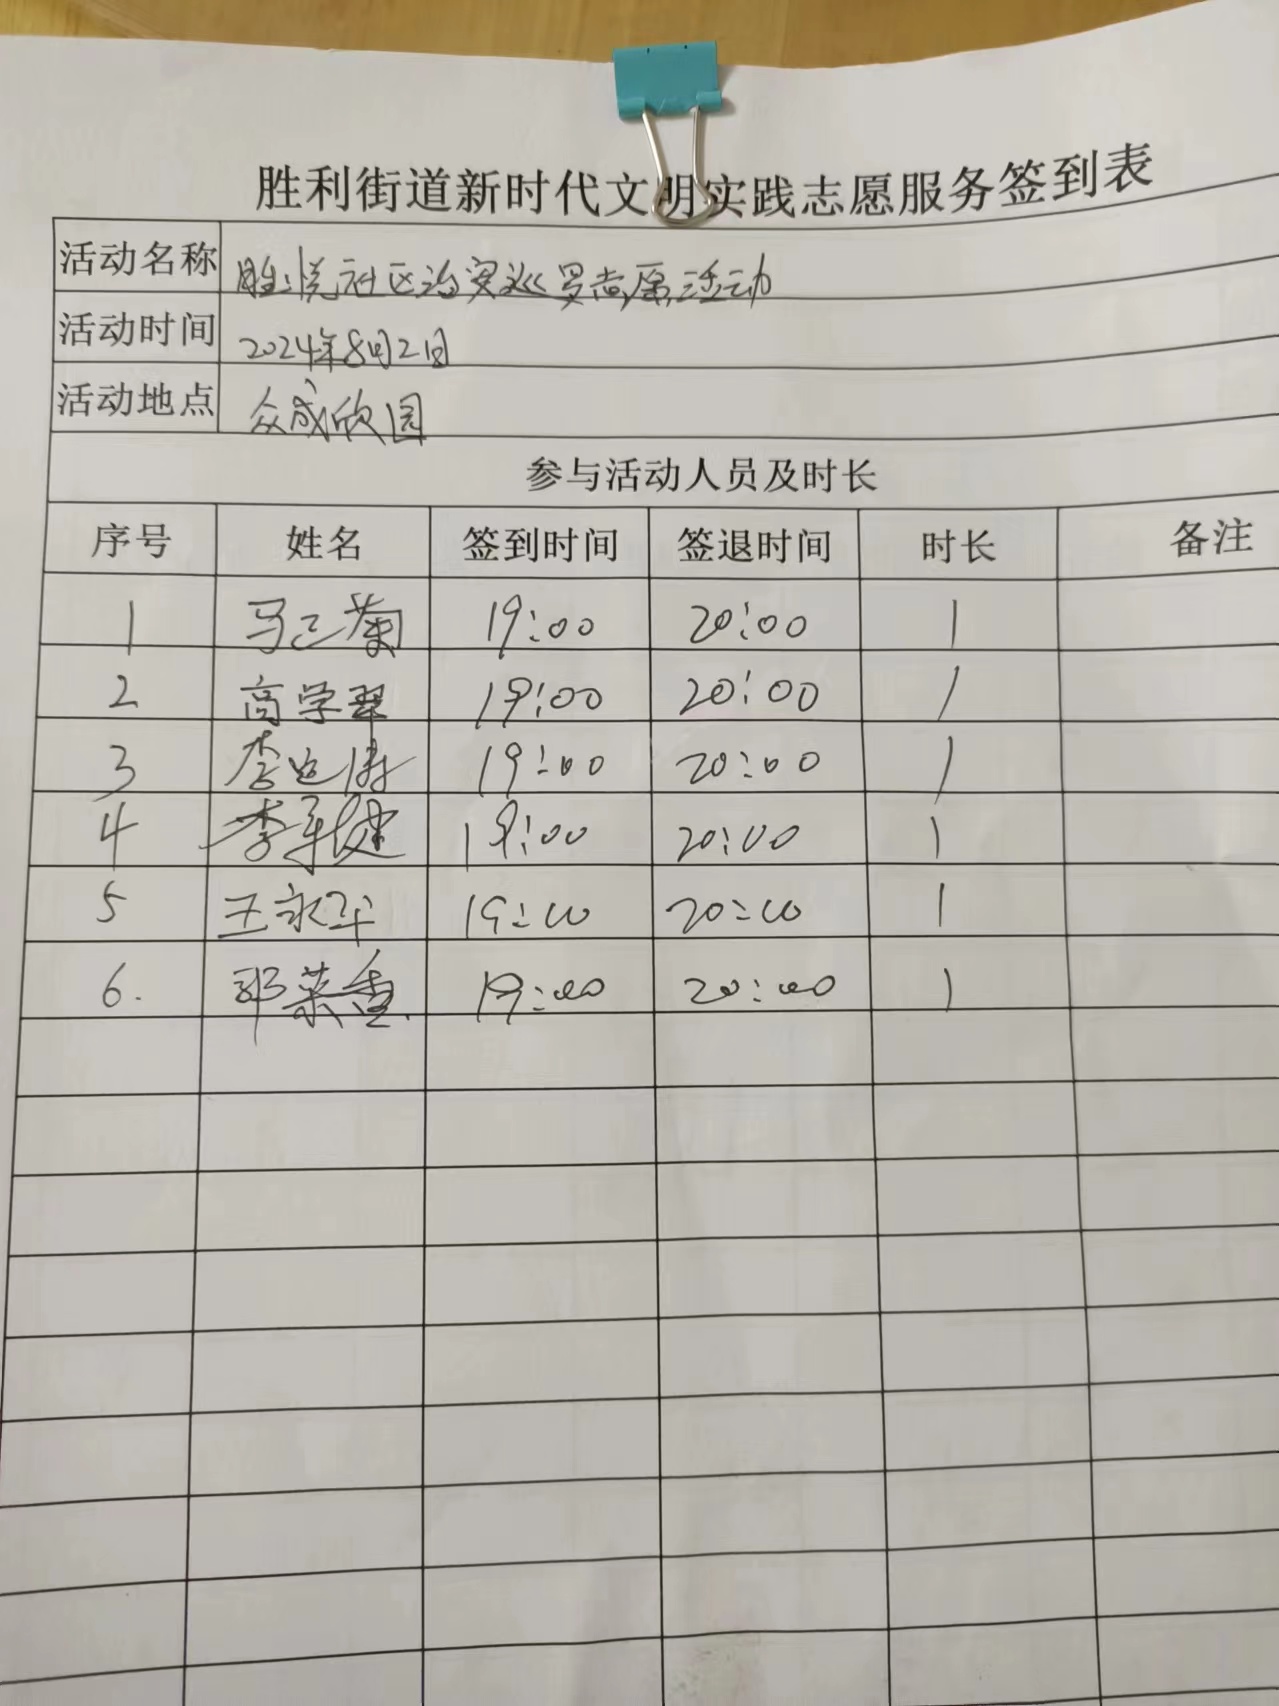 胜利街道新时代文明实践志愿服务签到表
活动名称 胜悦社区治安巡罗志愿活动
活动时间 2024年8月2日
活动地点 众成欣园
参与活动人员及时长
序号 姓名 签到时间 签退时间 时长 备注
1 马三菊 19:00 20:00 1
2 高学翠 19:00 20:00 1
3 李 19:00 20:00 1
4 李军健 19:00 20:00 1
5 王永华 19:00 20:00 1
6. 邓菜香 19:00 20:00 1